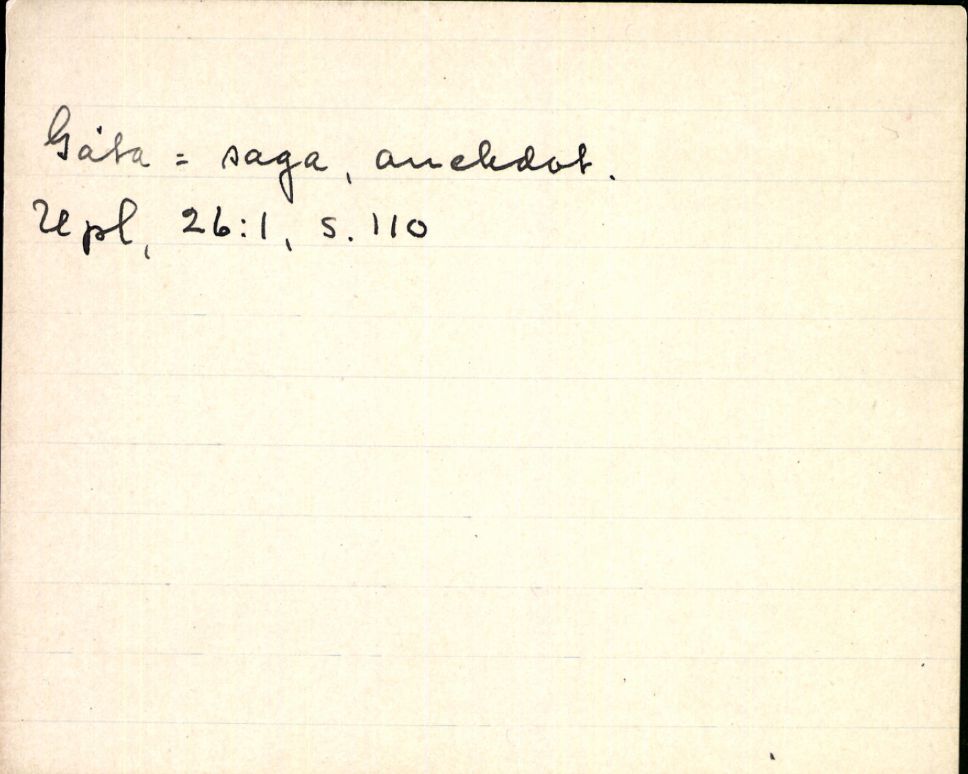 Gåta = saga, anekdot.
Upl, 26:1, s. 110